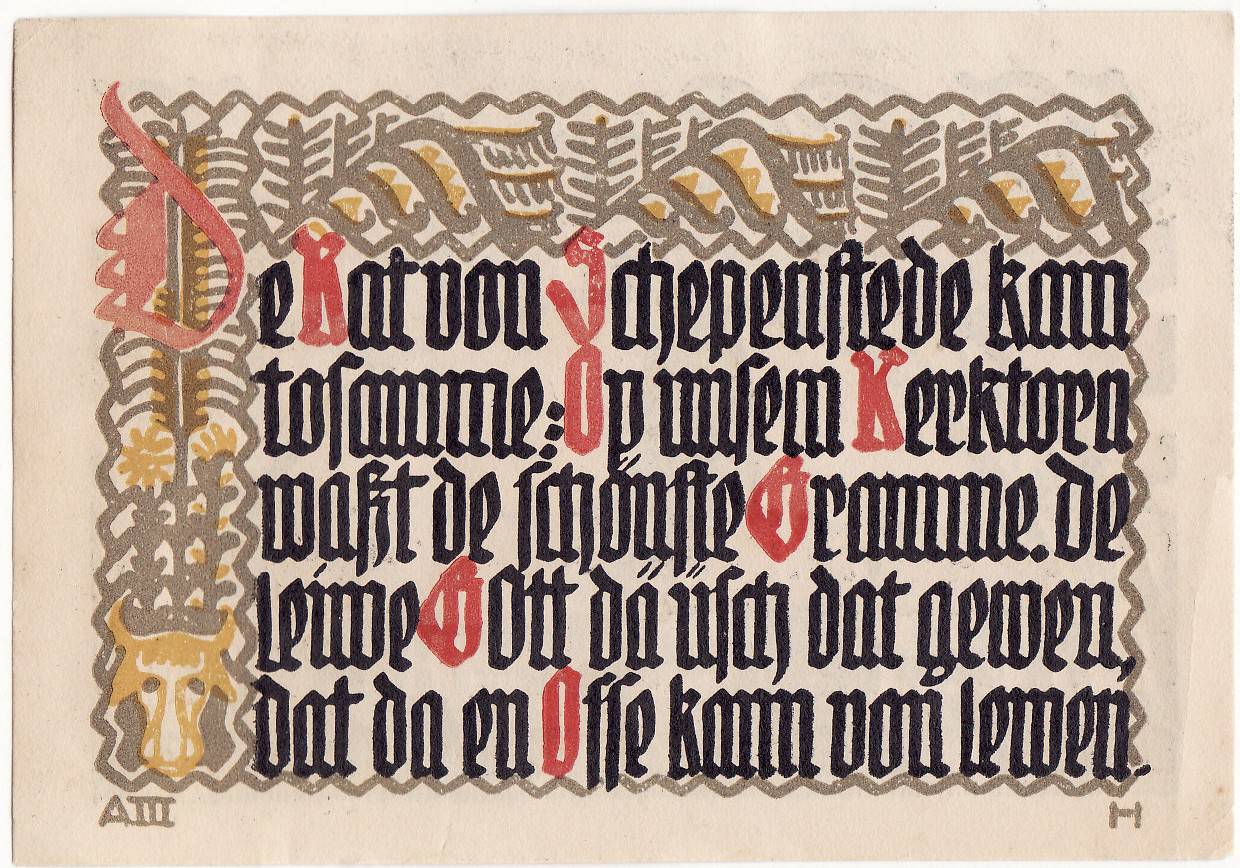 De Rat von Schepenstede kam
tosamme: Op unsem Kerktorn
waßt de schönste Gramme. de
leiwe Gott dä üsch dat gewen,
dat da en Osse kann von lewen.
A III H